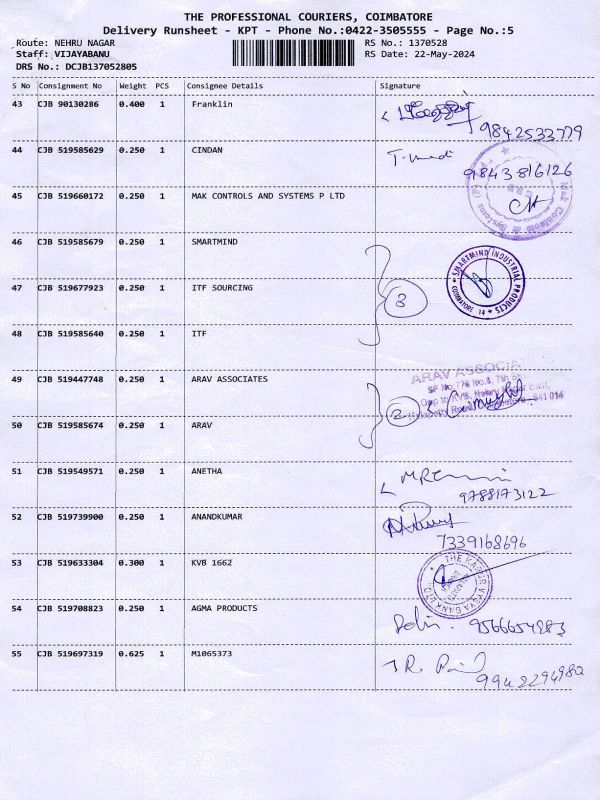 THE PROFESSIONAL COURIERS, COIMBATORE
Delivery Runsheet - KPT - Phone No.:0422-3505555 - Page No.:5
Route: NEHRU NAGAR RS No.: 1370528
Staff: VIJAYABANU RS Date: 22-May-2024
DRS No.: DCJB137052805
S No Consignment No Weight PCS Consignee Details Signature
43 CJB 90130286 0.400 1 Franklin
9842533779
44 CJB 519585629 0.250 1 CINDAN
9843816126
45 CJB 519660172 0.250 1 MAK CONTROLS AND SYSTEMS P LTD
Mak Controls & Systems
46 CJB 519585679 0.250 1 SMARTMIND
SMARTMIND INDUSTRIAL PRODUCTS
COIMBATORE 14
47 CJB 519677923 0.250 1 ITF SOURCING
3
48 CJB 519585640 0.250 1 ITF
49 CJB 519447748 0.250 1 ARAV ASSOCIATES
ARAV ASSOCIA
SF No.
2
641 014
50 CJB 519585674 0.250 1 ARAV
51 CJB 519549571 0.250 1 ANETHA
9788173122
52 CJB 519739900 0.250 1 ANANDKUMAR
7339168696
53 CJB 519633304 0.300 1 KVB 1662
THE KARUR VYSYA BANK LTD
54 CJB 519708823 0.250 1 AGMA PRODUCTS
9566654983
55 CJB 519697319 0.625 1 M1065373
9942294982